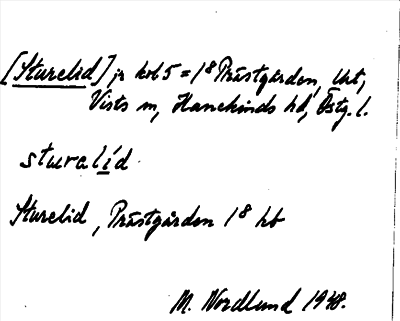 [Sturelid] jr kbl 5 = 1⁸ Prästgården, Ukt,
Vists sn, Hanekinds hd, Östg. l.
sturalíd
Sturelid, Prästgården 1⁸ kb
M. Nordlund 1948.